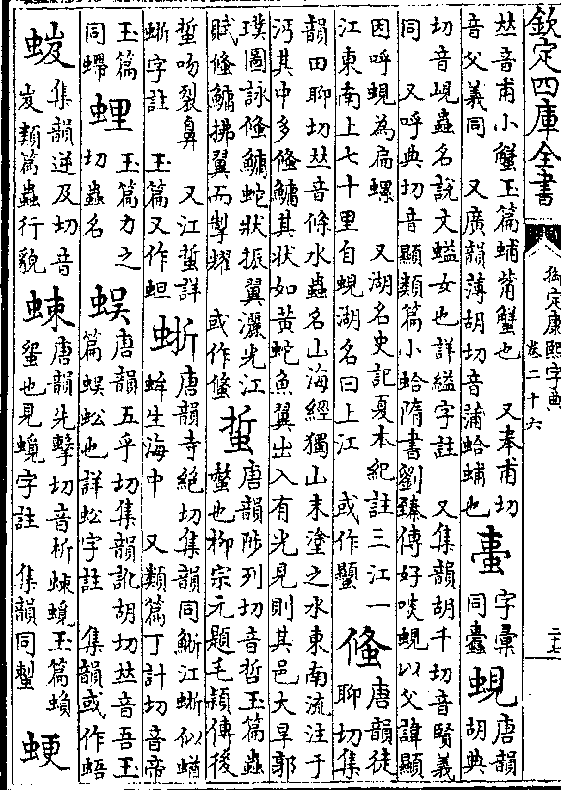 欽定四庫全書
御定康熙字典
卷二十六
二十七
𠀤音甫小蟹玉篇蜅䓪蟹也 又奉甫切
音父義同 又廣韻薄胡切音蒲蛤蜅也 字彙同蠹 蜆 唐韻胡典
切音峴蟲名說文縊女也詳縊字註 又集韻胡千切音賢義
同 又呼典切音顯類篇小蛤隋書劉臻傳好啖蜆以父諱顯
因呼蜆為扁螺 又湖名史記夏本紀註三江一
江東南上七十里自蜆湖名曰上江 或作䗾 䖺 唐韻徒聊切集
韻田聊切𠀤音條水蟲名山海經獨山末塗之水東南流注于
沔其中多䖺䗤其狀如黃蛇魚翼出入有光見則其邑大旱郭
璞圖詠䖺䗤蛇狀振翼灑光江
賦䖺䗤拂翼而掣耀 或作䖺 蜇 唐韻陟列切音哲玉篇蟲
螫也柳宗元題毛穎傳後
蜇吻裂鼻 又江蜇詳
蜥字註 玉篇又作䖧 蜥 唐韻寺絕切集韻同鰤江蜥似蝤
蛑生海中 又類篇丁計切音帝
玉篇同螮 𧋎 玉篇力之切蟲名 蜈 唐韻五乎切集韻訛胡切𠀤音吾玉
篇蜈蚣也詳蚣字註 集韻或作䗁
𧊲 集韻逆及切音岌類篇蟲行貌 𧋒 唐韻先擊切音析𧋒蜺玉篇螾
蛩也見蜺字註 集韻同蜤 𧋑